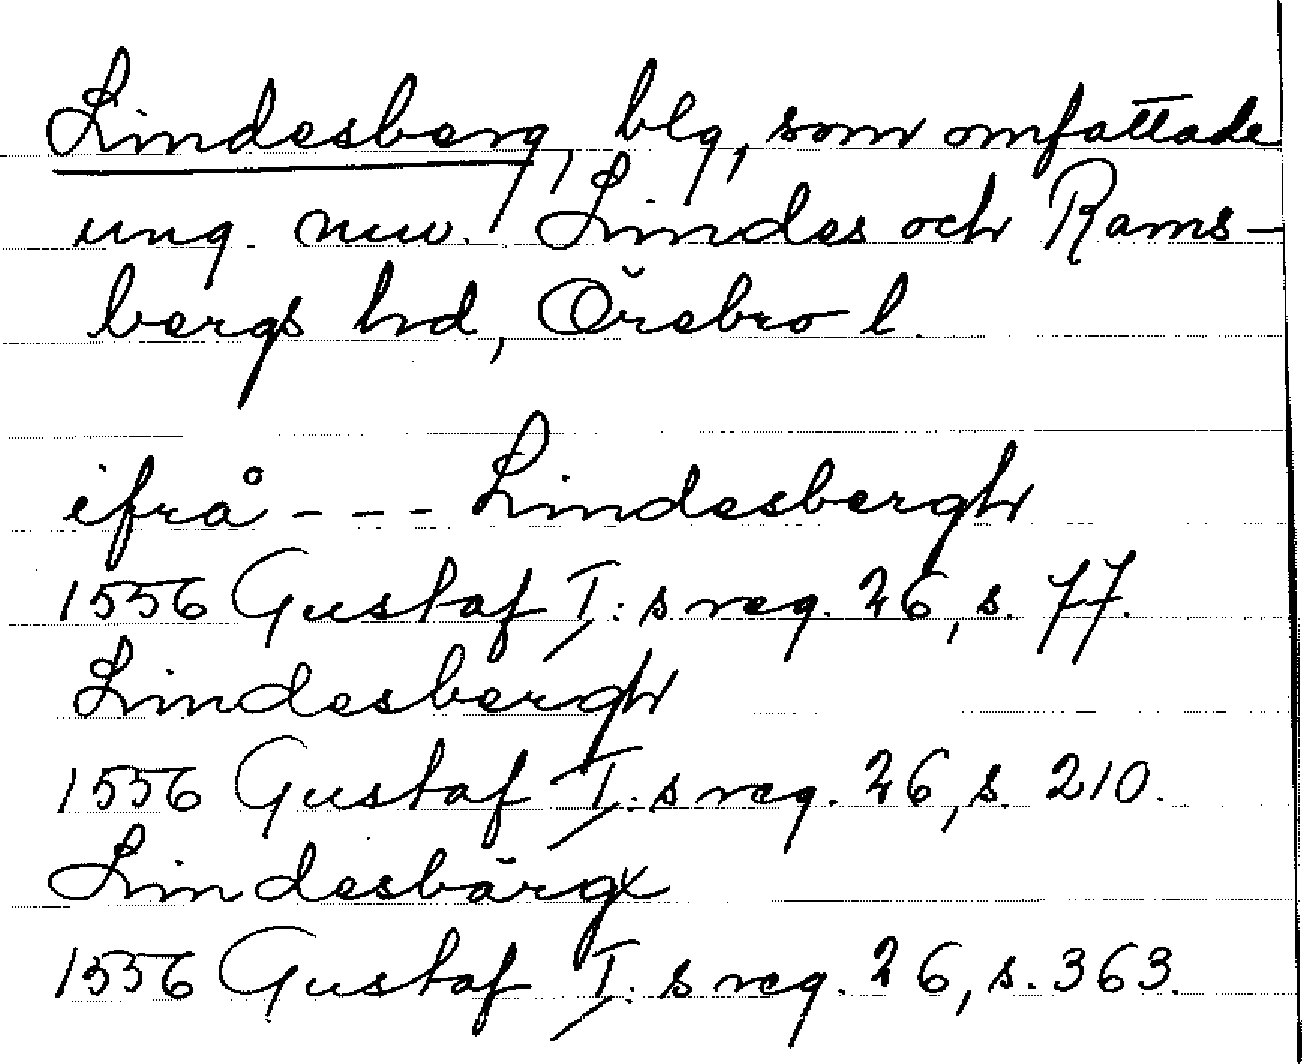 Lindesberg, blg, som omfattade
ung. nuv. Lindes och Rams-
bergs hd, Örebro l.
ifrå - - - Lindesbergh
1556 Gustaf I:s reg. 26, s. 77.
Lindesbergh
1556 Gustaf I:s reg. 26, s. 210.
Lindesbärgx
1556 Gustaf I:s reg. 26, s. 363.